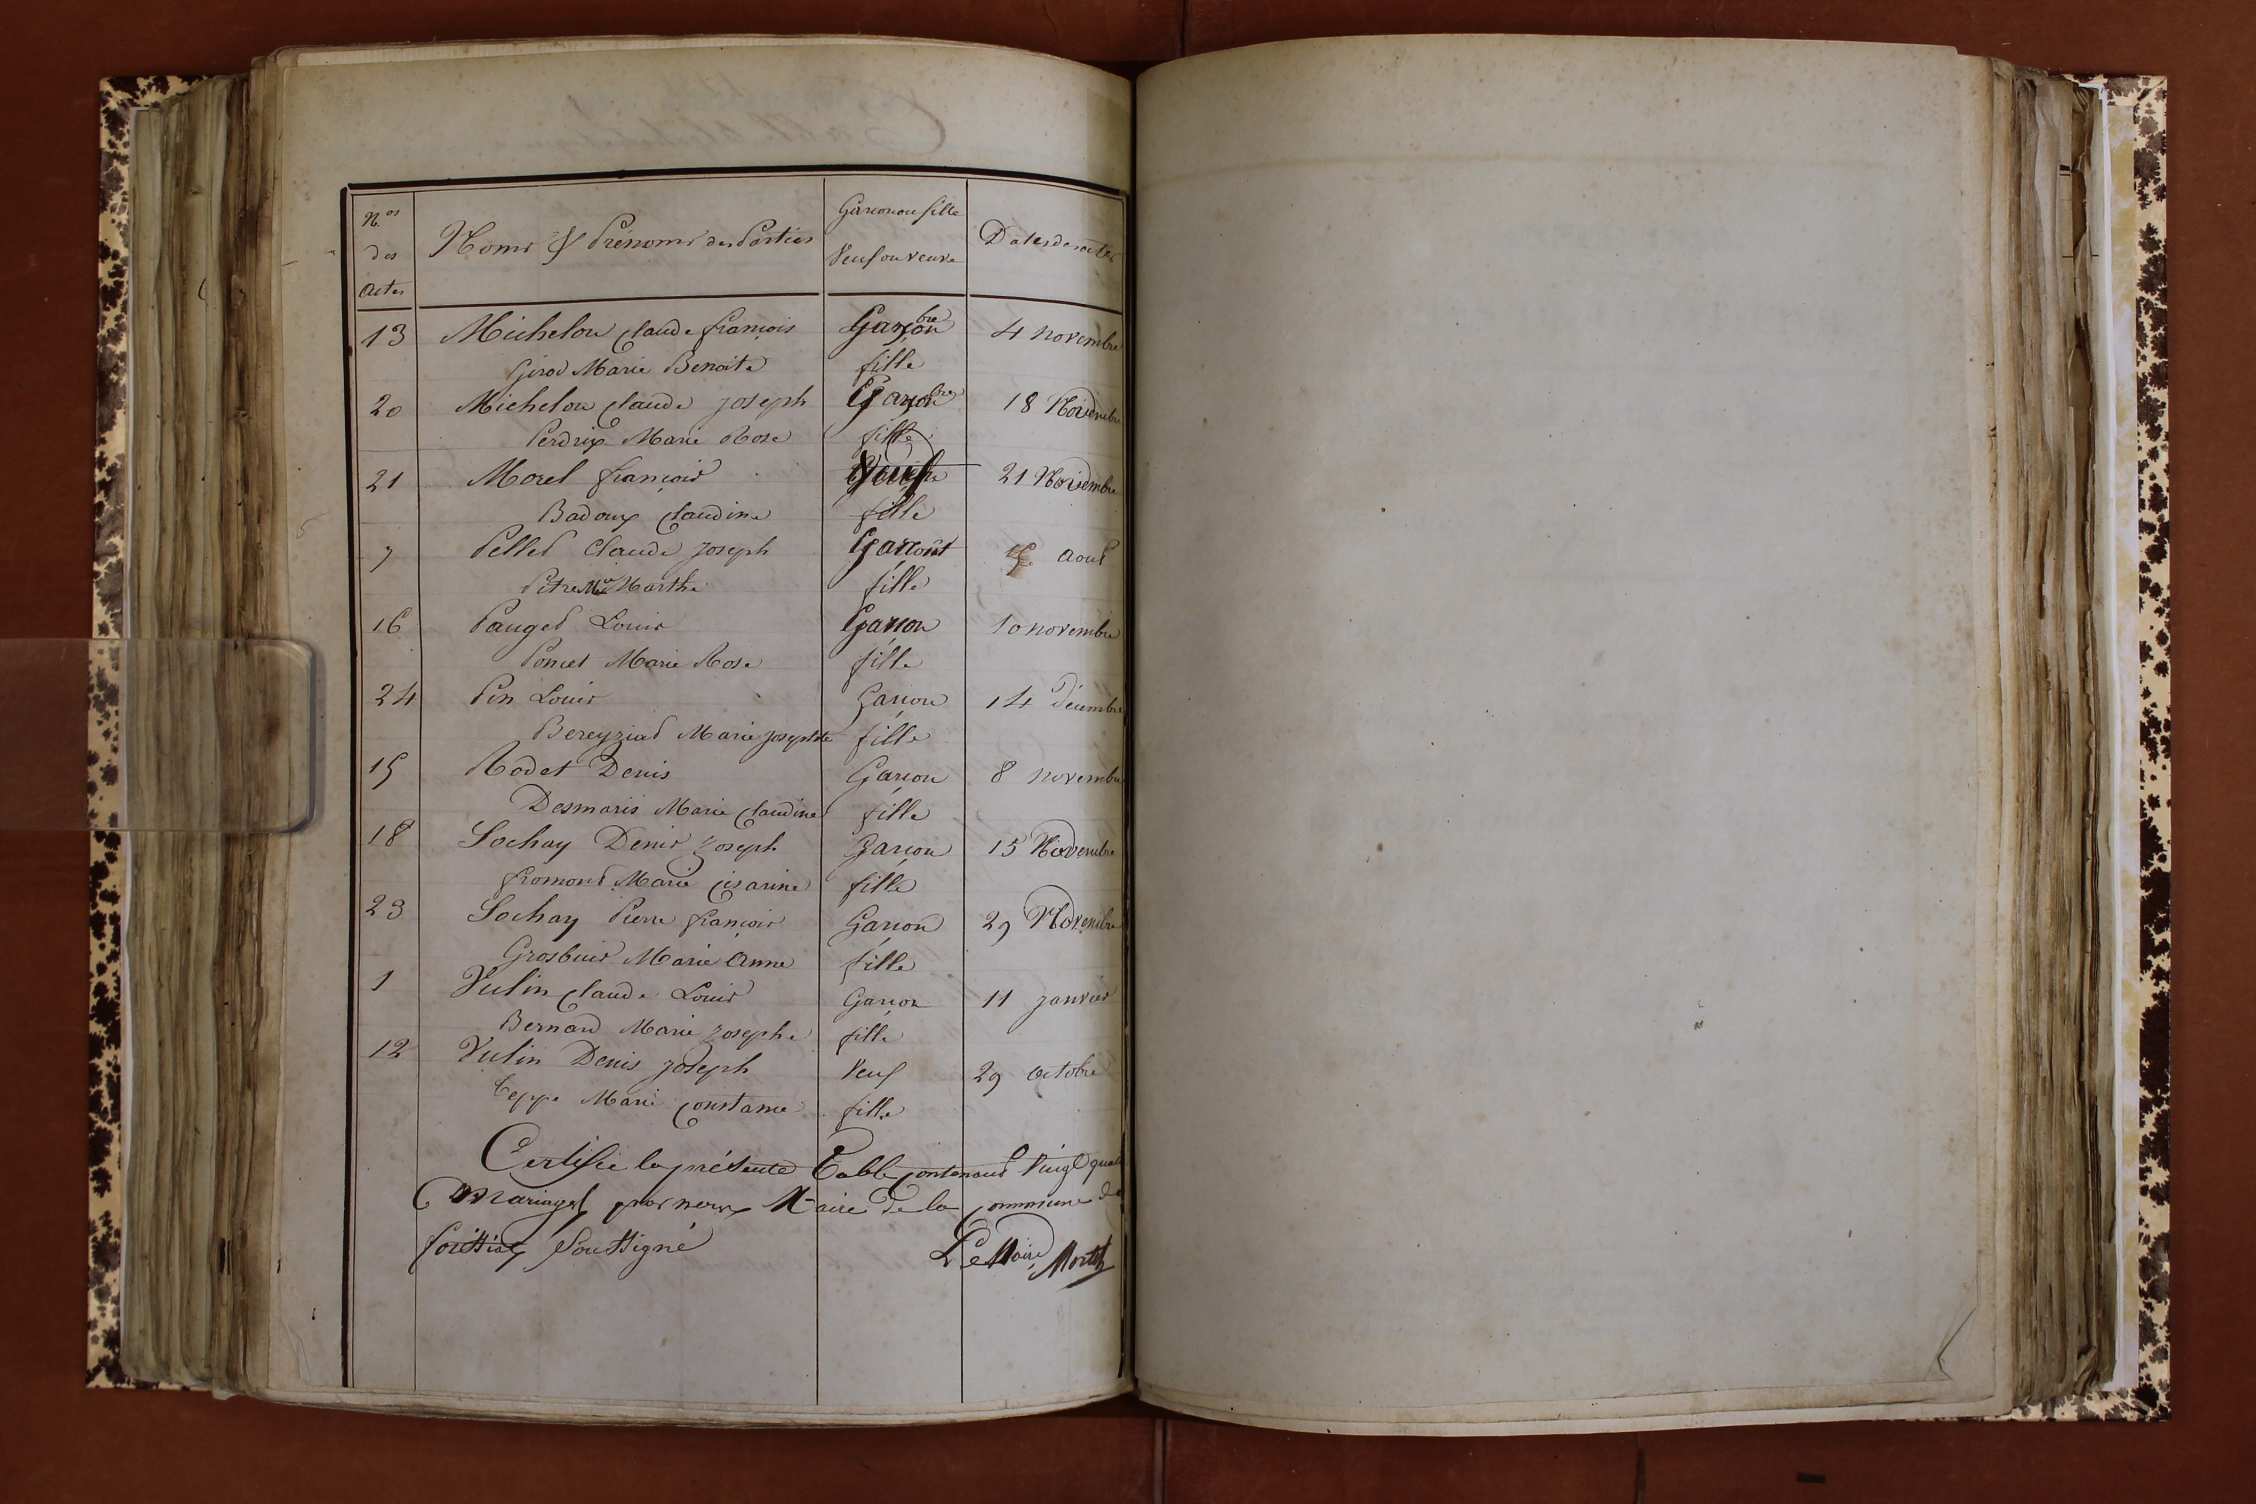 N.os des Actes
Noms & Prénoms des Parties
Garcon ou fille
Veuf ou veuve
Dates des actes
13 Michelon Claude françois Garçon 4 novembre
Girod Marie Benoite fille
20 Michelon Claude Joseph Garçon 18 Novembre
Perdrix Marie Rose fille
21 Morel françois Veuf 21 Novembre
Badoux Claudine fille
7 Pellet Claude Joseph Garcon aout
Pitre Mie Marthe fille
16 Pauget Louis Garcon 10 novembre
Poncet Marie Rose fille
24 Pin Louis Garcon 14 décembre
Bereyziat Marie Josephte fille
15 Rodet Denis Garcon 8 novembre
Desmaris Marie Claudine fille
18 Sochay Denis Joseph Garcon 15 Novembre
fromont Marie Césarine fille
23 Sochay Pierre françois Garcon 29 Novembre
Grosbuis Marie Anne fille
1 Vulin Claude Louis Garcon 11 janvier
Bernard Marie Josephe fille
12 Vulin Denis Joseph Veuf 29 octobre
Teppe Marie Constance fille
Certifié la présente Table contenant Vingt quatre
Mariages par nous Maire de la Commune de
foissiat Soussigné
Le Maire